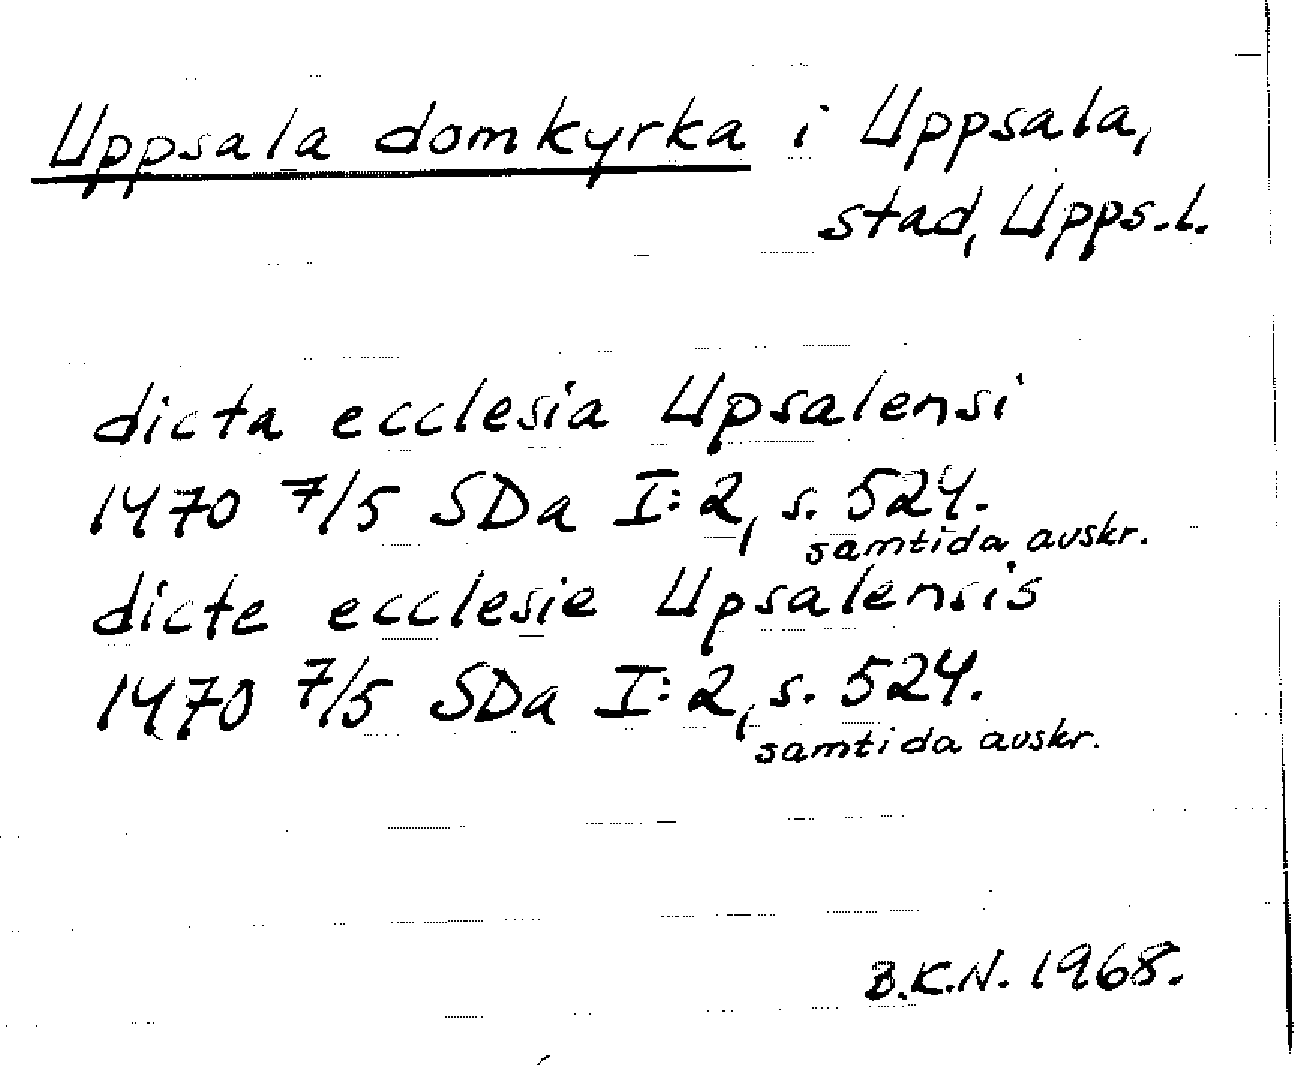 Uppsala domkyrka i Uppsala,
stad, Upps.l.
dicta ecclesia Upsalensi
1470 7/5 SDa I:2, s. 524.
samtida avskr.
dicte ecclesie Upsalensis
1470 7/5 SDa I:2, s. 524.
samtida avskr.
B.K.N. 1968.